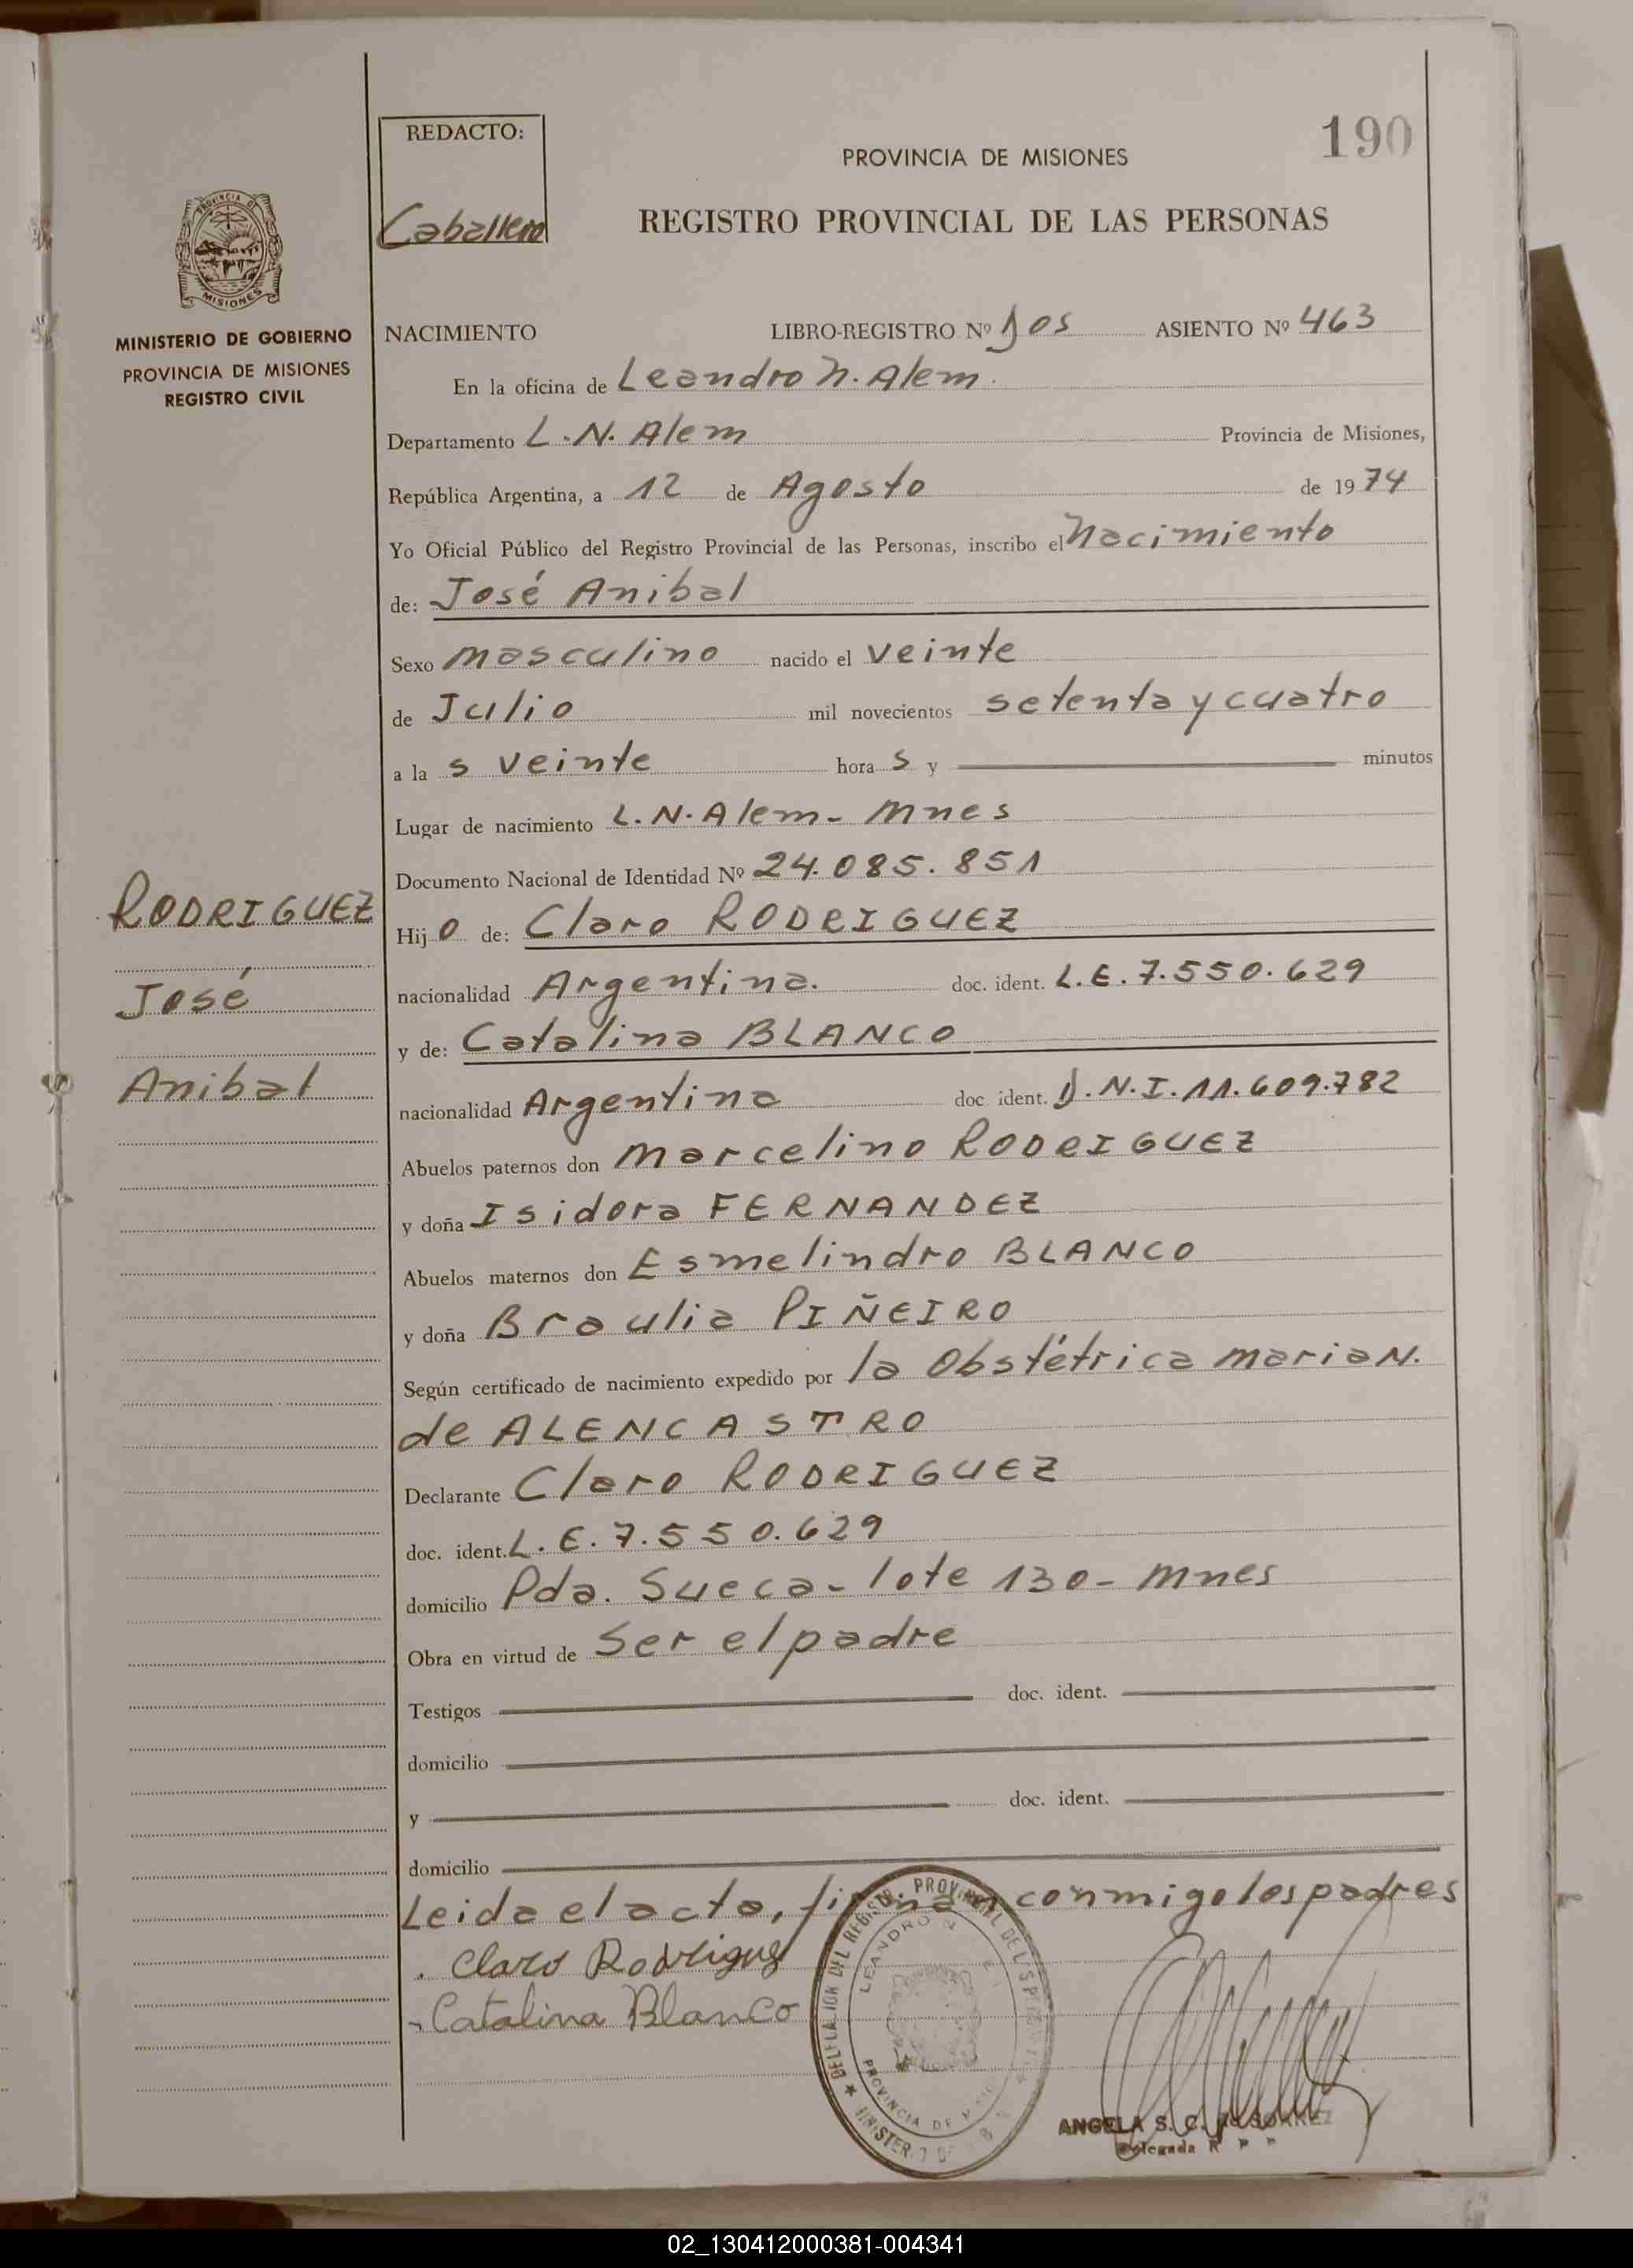 REDACTO:
Caballero
190
PROVINCIA DE MISIONES
REGISTRO PROVINCIAL DE LAS PERSONAS
PROVINCIA DE
MISIONES
MINISTERIO DE GOBIERNO
PROVINCIA DE MISIONES
REGISTRO CIVIL
NACIMIENTO LIBRO-REGISTRO Nº Dos ASIENTO Nº 463
En la oficina de Leandro N. Alem.
Departamento L.N. Alem Provincia de Misiones,
República Argentina, a 12 de Agosto de 1974
Yo Oficial Público del Registro Provincial de las Personas, inscribo el Nacimiento
de: José Anibal
Sexo masculino nacido el veinte
de Julio mil novecientos setenta y cuatro
a la s veinte hora s y minutos
Lugar de nacimiento L.N. Alem - Mnes
Documento Nacional de Identidad Nº 24.085.851
RODRIGUEZ
José
Anibal
Hijo de: Claro RODRIGUEZ
nacionalidad Argentina. doc. ident. L.E. 7.550.629
y de: Catalina BLANCO
nacionalidad Argentina doc ident. D.N.I. 11.609.782
Abuelos paternos don Marcelino RODRIGUEZ
y doña Isidora FERNANDEZ
Abuelos maternos don Esmelindro BLANCO
y doña Braulia PIÑEIRO
Según certificado de nacimiento expedido por la Obstétrica Maria N.
de ALENCASTRO
Declarante Claro RODRIGUEZ
doc. ident. L.E. 7.550.629
domicilio Pda. Sueca - lote 130 - Mnes
Obra en virtud de Ser el padre
Testigos doc. ident.
domicilio
y doc. ident.
domicilio
Leida el acta, firman conmigo los padres
Claro Rodriguez
Catalina Blanco
LEANDRO N
PROVINCIA DE
ANGELA S. C. de SUAREZ
Delegada R P P
02_130412000381-004341